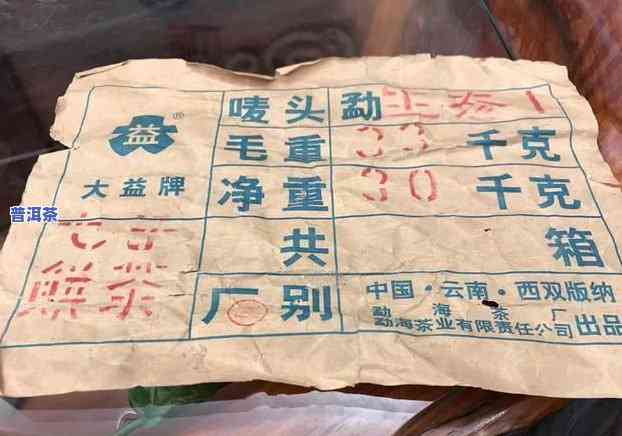 益®
大益牌
七子
餅茶
唛头 勐
毛重 33 千克
净重 30 千克
共 箱
厂别
中国·云南·西双版纳
勐海茶厂
勐海茶业有限责任公司 出品
普洱茶